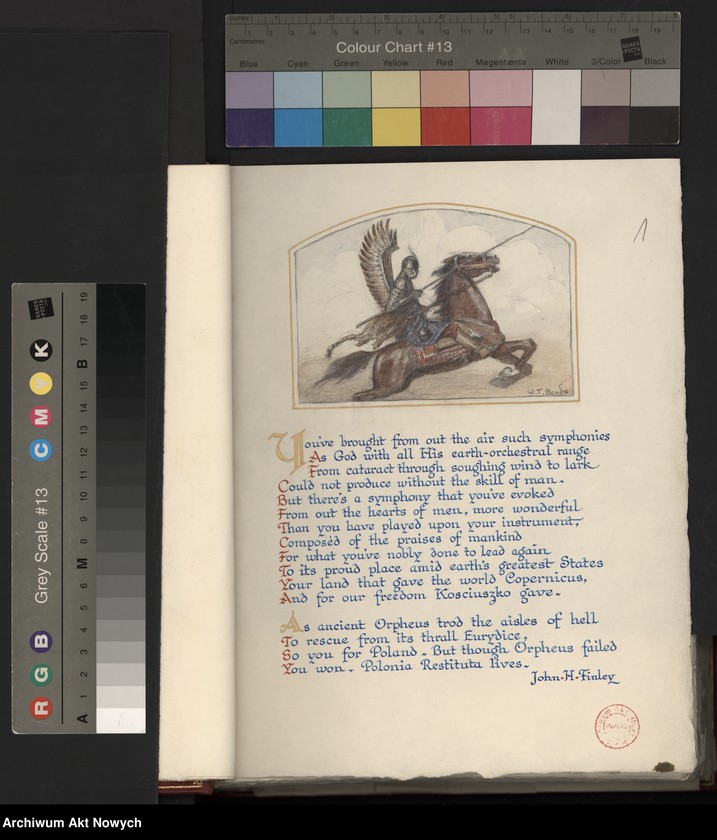 Inches
Centimetres
Colour Chart #13
DANES PICTA
Blue Cyan Green Yellow Red Magenta White 3/Color Black
1
W.T. Benda
You've brought from out the air such symphonies
As God with all His earth-orchestral range
From cataract through soughing wind to lark
Could not produce without the skill of man.
But there's a symphony that you've evoked
From out the hearts of men, more wonderful
Than you have played upon your instrument,
Composéd of the praises of mankind
For what you've nobly done to lead again
To its proud place amid earth's greatest States
Your land that gave the world Copernicus,
And for our freedom Kosciuszko gave.
As ancient Orpheus trod the aisles of hell
To rescue from its thrall Eurydice,
So you for Poland. But though Orpheus failed
You won. Polonia Restituta lives.
John·H·Finley
Grey Scale #13
R G B C M Y K
A 1 2 3 4 5 6 M 8 9 10 11 12 13 14 15 B 17 18 19
Archiwum Akt Nowych